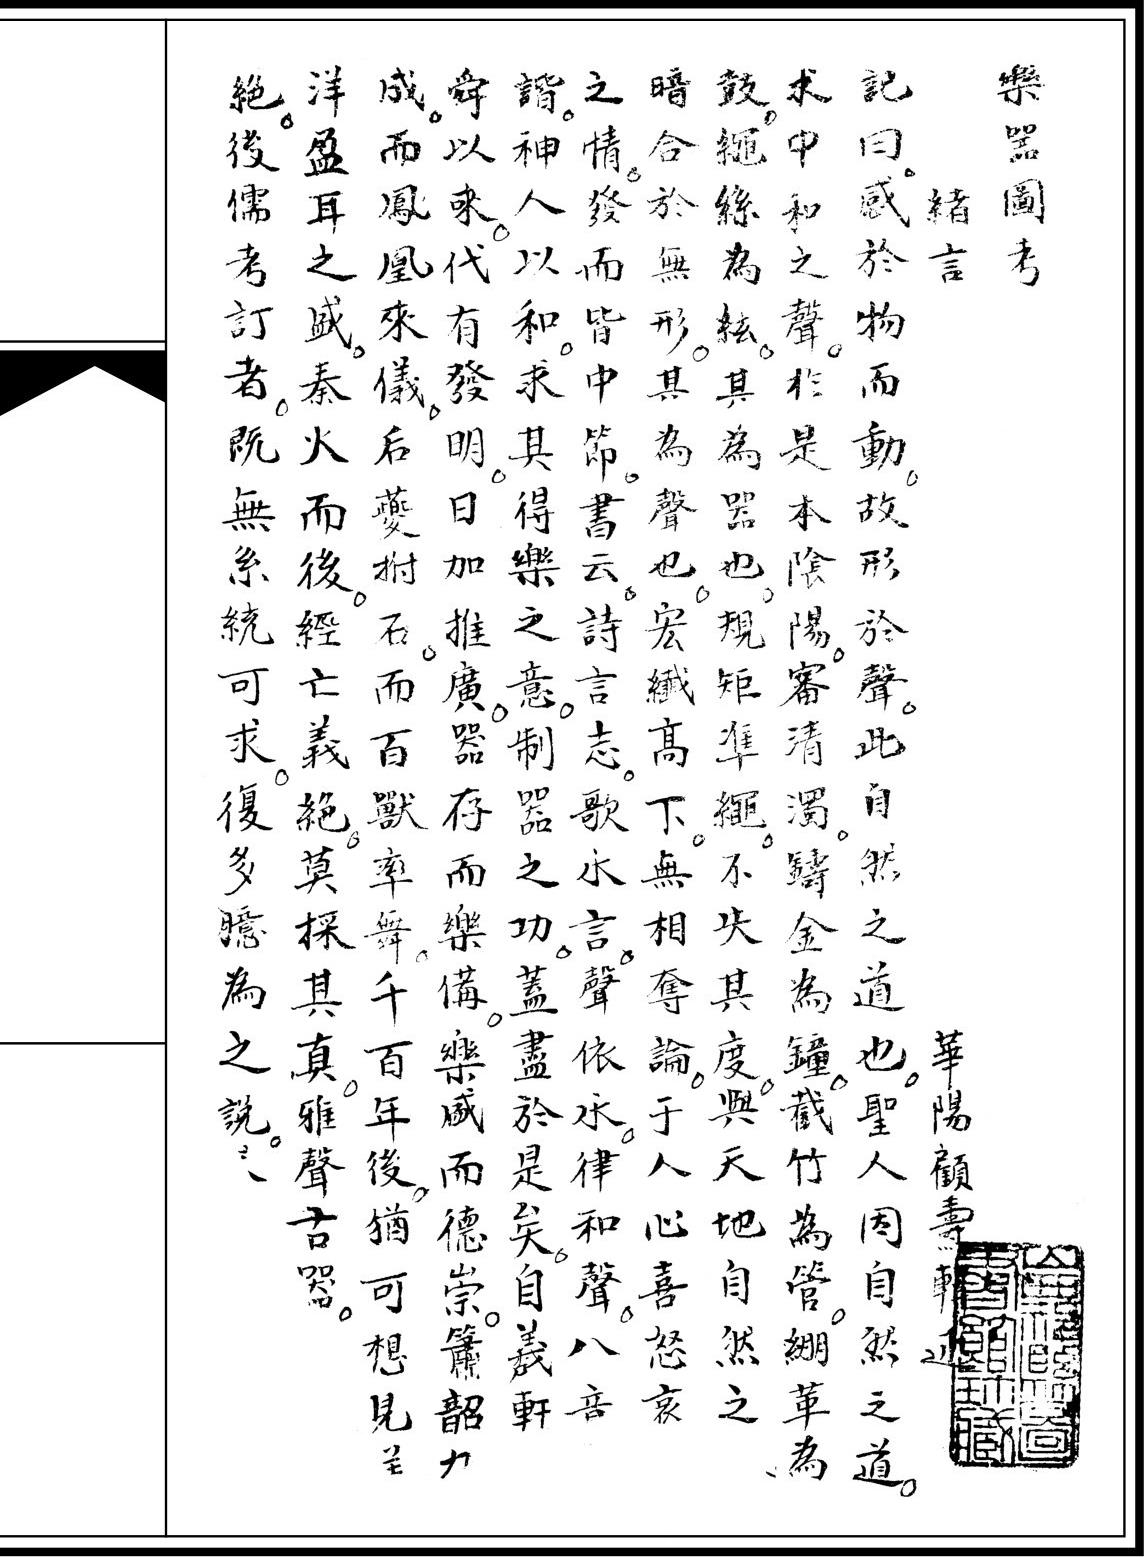 樂器圖考
緒言 華陽顧壽軒述
記曰。感於物而動。故形於聲。此自然之道也。聖人因自然之道。
求中和之聲。於是本陰陽。審清濁。鑄金為鐘。截竹為管。綳革為
鼓。繩絲為絃。其為器也。規矩準繩。不失其度。與天地自然之
暗合於無形。其為聲也。宏纖高下。無相奪論。于人心喜怒哀
之情。發而皆中節。書云。詩言志。歌永言。聲依永。律和聲。八音
諧。神人以和。求其得樂之意。制器之功。蓋盡於是矣。自羲軒
舜以來。代有發明。日加推廣。器存而樂備。樂盛而德崇。簫韶九
成。而鳳凰來儀。后夔拊石。而百獸率舞。千百年後。猶可想見
洋盈耳之盛。秦火而後。經亡義絕。莫採其真。雅聲古器。
絕。後儒考訂者。既無系統可求。復多臆為之說。